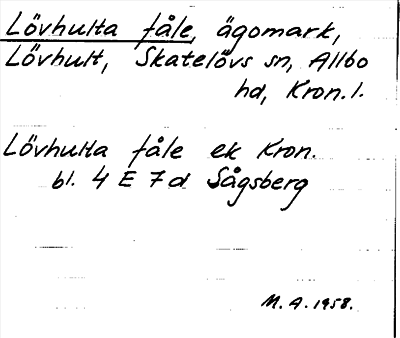 Lövhulta fåle, ägomark,
Lövhult, Skatelövs sn, Allbo
hd, Kron. l.
Lövhulta fåle ek Kron.
bl. 4 E 7 d Sågsberg
M. A. 1958.